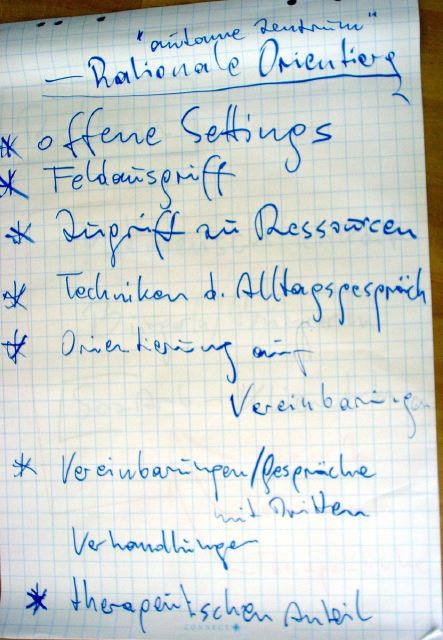 "autonome Zentrum"
— Rationale Orientierg
* offene Settings
* Feldausgriff
* Zugriff zu Ressourcen
* Techniken d. Alltagsgespräch
* Orientierung auf
Vereinbarungen
* Vereinbarungen/Gespräche
mit Dritten
Verhandlungen
* therapeutischen Anteil
CONNECT